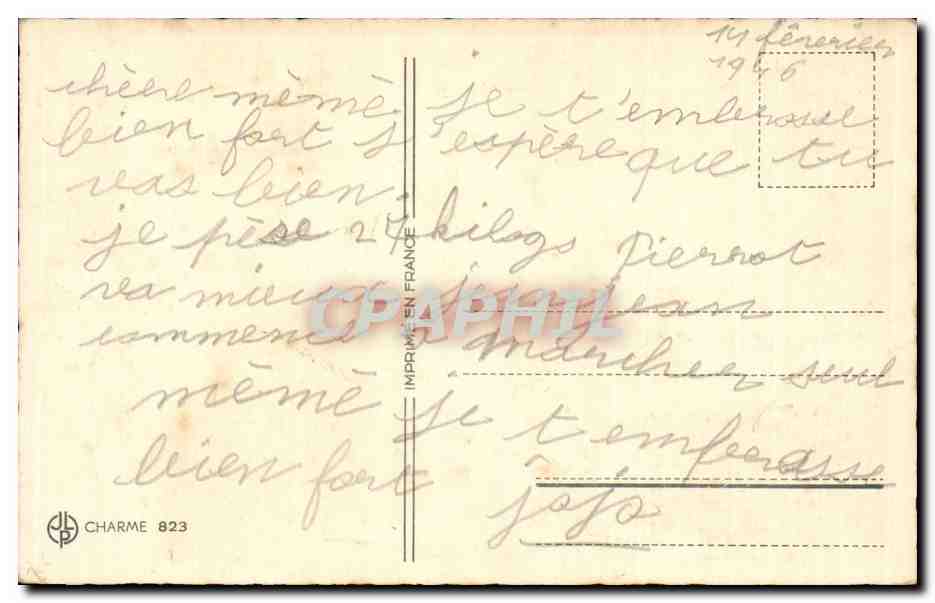 14 février
1946
chère mèmè je t'embrasse
bien fort j'espère que tu
vas bien.
je pèse 27 kilogs Pierrot
va mieux jean
commence à marcher seul
mèmè je t'embrasse
bien fort
jojo
IMPRIMÉ EN FRANCE
CPAPHIL
JLP CHARME 823